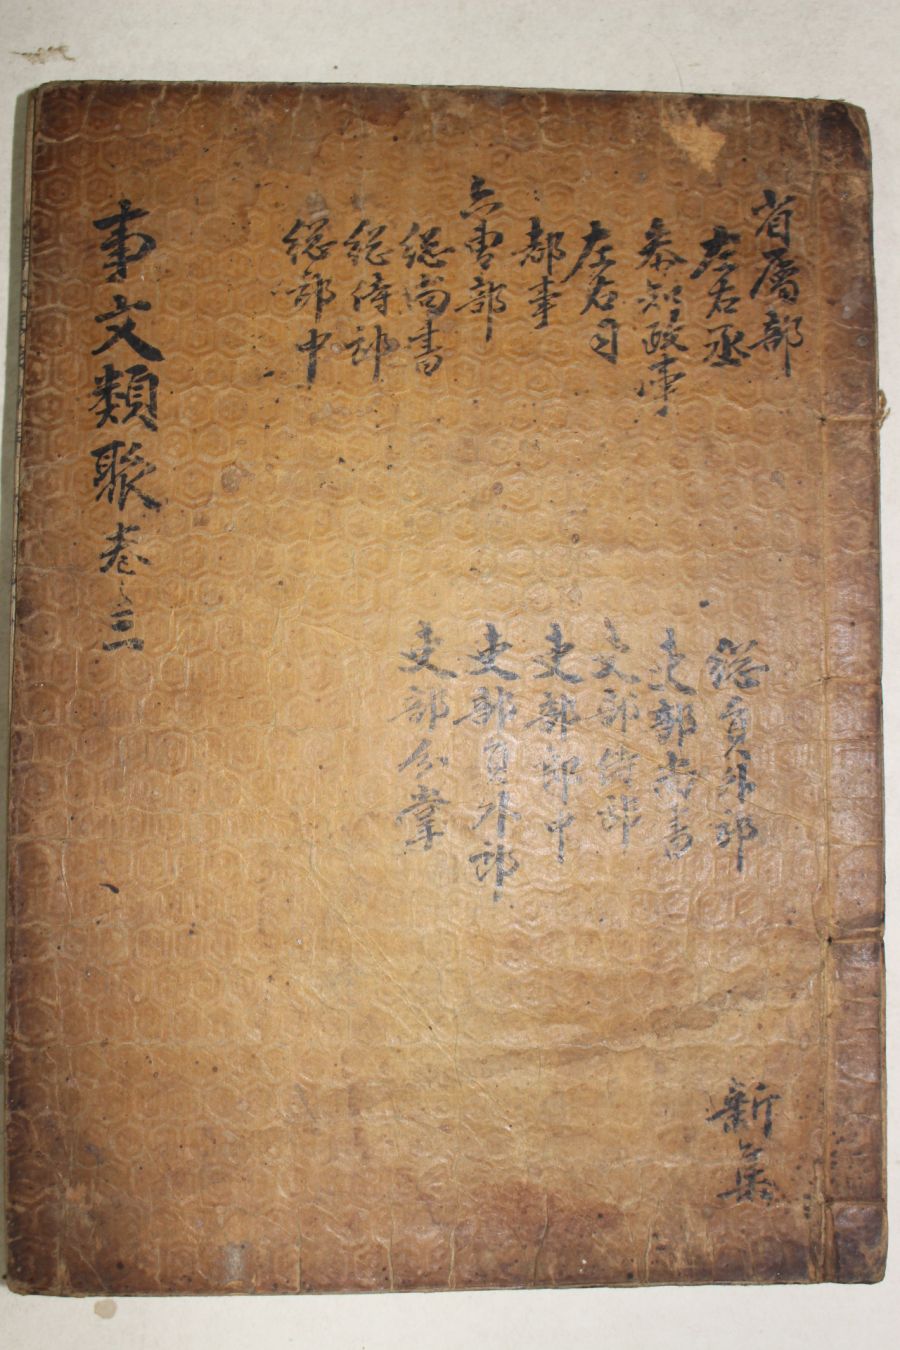 省屬部
左右丞
參知政事
左右司
都事
六曹部
緫尚書
緫侍郎
緫郎中
緫員外郎
吏部尚書
吏部侍郎
吏部郎中
吏部員外郎
吏部公掌
新集
事文類聚 卷之三